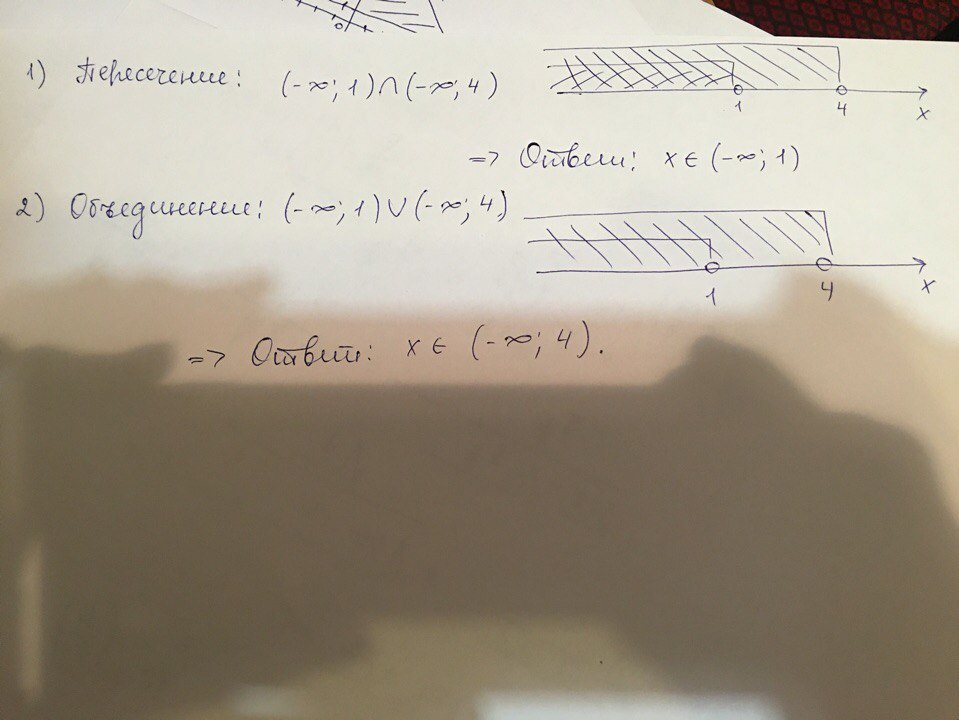 1) Пересечение: (-∞; 1)∩(-∞; 4)
1 4 x
=> Ответ: x ∈ (-∞; 1)
2) Объединение: (-∞; 1)∪(-∞; 4)
1 4 x
=> Ответ: x ∈ (-∞; 4).